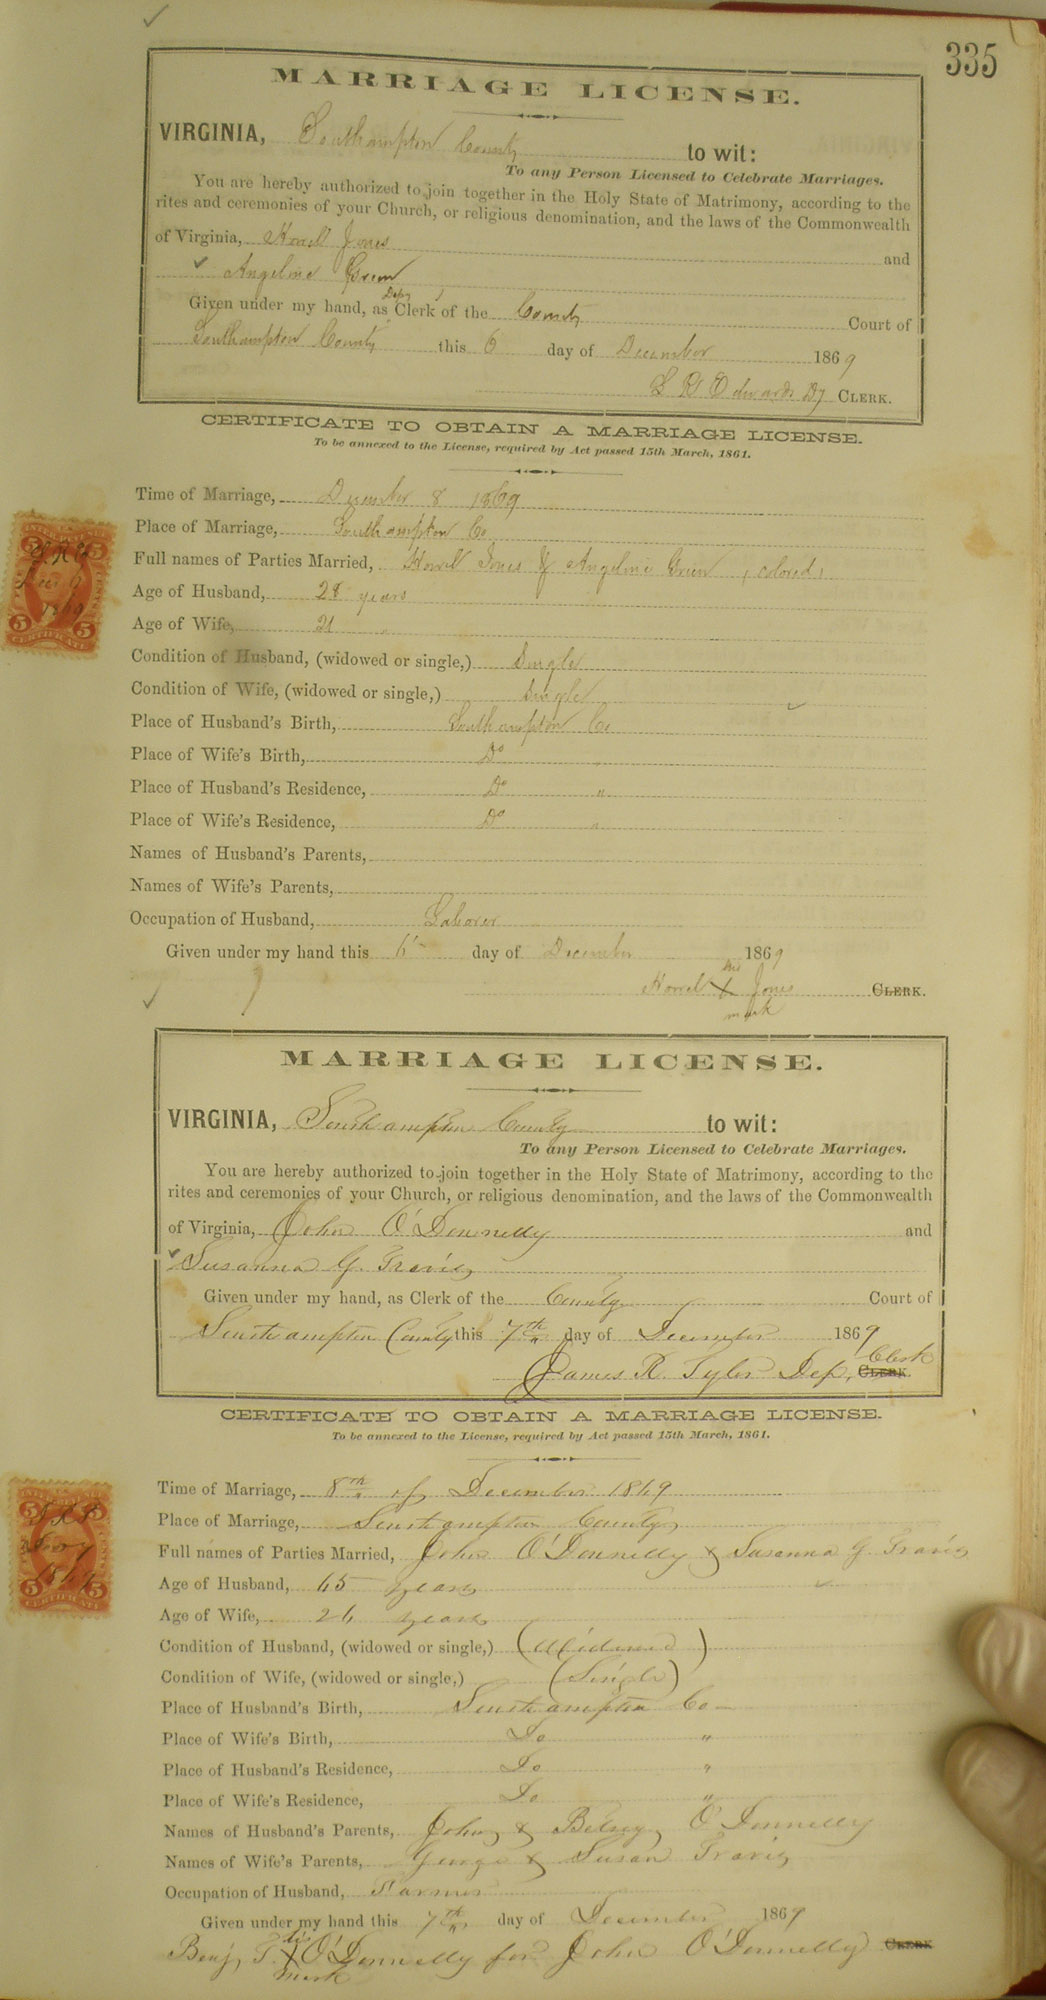 335
MARRIAGE LICENSE.
VIRGINIA, Southampton County to wit:
To any Person Licensed to Celebrate Marriages.
You are hereby authorized to join together in the Holy State of Matrimony, according to the
rites and ceremonies of your Church, or religious denomination, and the laws of the Commonwealth
of Virginia, Howell Jones and
Angeline Green
Given under my hand, as Depy Clerk of the County Court of
Southampton County this 6 day of December 1869
L R Edwards Dy CLERK.
CERTIFICATE TO OBTAIN A MARRIAGE LICENSE.
To be annexed to the License, required by Act passed 15th March, 1861.
Time of Marriage, December 8 1869
Place of Marriage, Southampton Co
Full names of Parties Married, Howel Jones & Angeline Green (colored)
Age of Husband, 28 years
Age of Wife, 21 "
Condition of Husband, (widowed or single,) Single
Condition of Wife, (widowed or single,) Single
Place of Husband's Birth, Southampton Co
Place of Wife's Birth, Do "
Place of Husband's Residence, Do "
Place of Wife's Residence, Do "
Names of Husband's Parents,
Names of Wife's Parents,
Occupation of Husband, Laborer
Given under my hand this 6 day of December 1869
his
Howel X Jones CLERK.
mark
MARRIAGE LICENSE.
VIRGINIA, Southampton County to wit:
To any Person Licensed to Celebrate Marriages.
You are hereby authorized to join together in the Holy State of Matrimony, according to the
rites and ceremonies of your Church, or religious denomination, and the laws of the Commonwealth
of Virginia, John O'Donnelly and
Susanna G. Travis
Given under my hand, as Clerk of the County Court of
Southampton County this 7th day of December 1869
James R. Tyler Dep, Clerk CLERK.
CERTIFICATE TO OBTAIN A MARRIAGE LICENSE.
To be annexed to the License, required by Act passed 15th March, 1861.
Time of Marriage, 8th of December 1869
Place of Marriage, Southampton County
Full names of Parties Married, John O'Donnelly & Susanna G. Travis
Age of Husband, 65 years
Age of Wife, 26 years
Condition of Husband, (widowed or single,) (Widowed)
Condition of Wife, (widowed or single,) (Single)
Place of Husband's Birth, Southampton Co
Place of Wife's Birth, Do "
Place of Husband's Residence, Do "
Place of Wife's Residence, Do "
Names of Husband's Parents, John & Betsey O'Donnelly
Names of Wife's Parents, George & Susan Travis
Occupation of Husband, Farmer
Given under my hand this 7th day of December 1869
his
Benj. T. X O'Donnelly for John O'Donnelly CLERK
mark